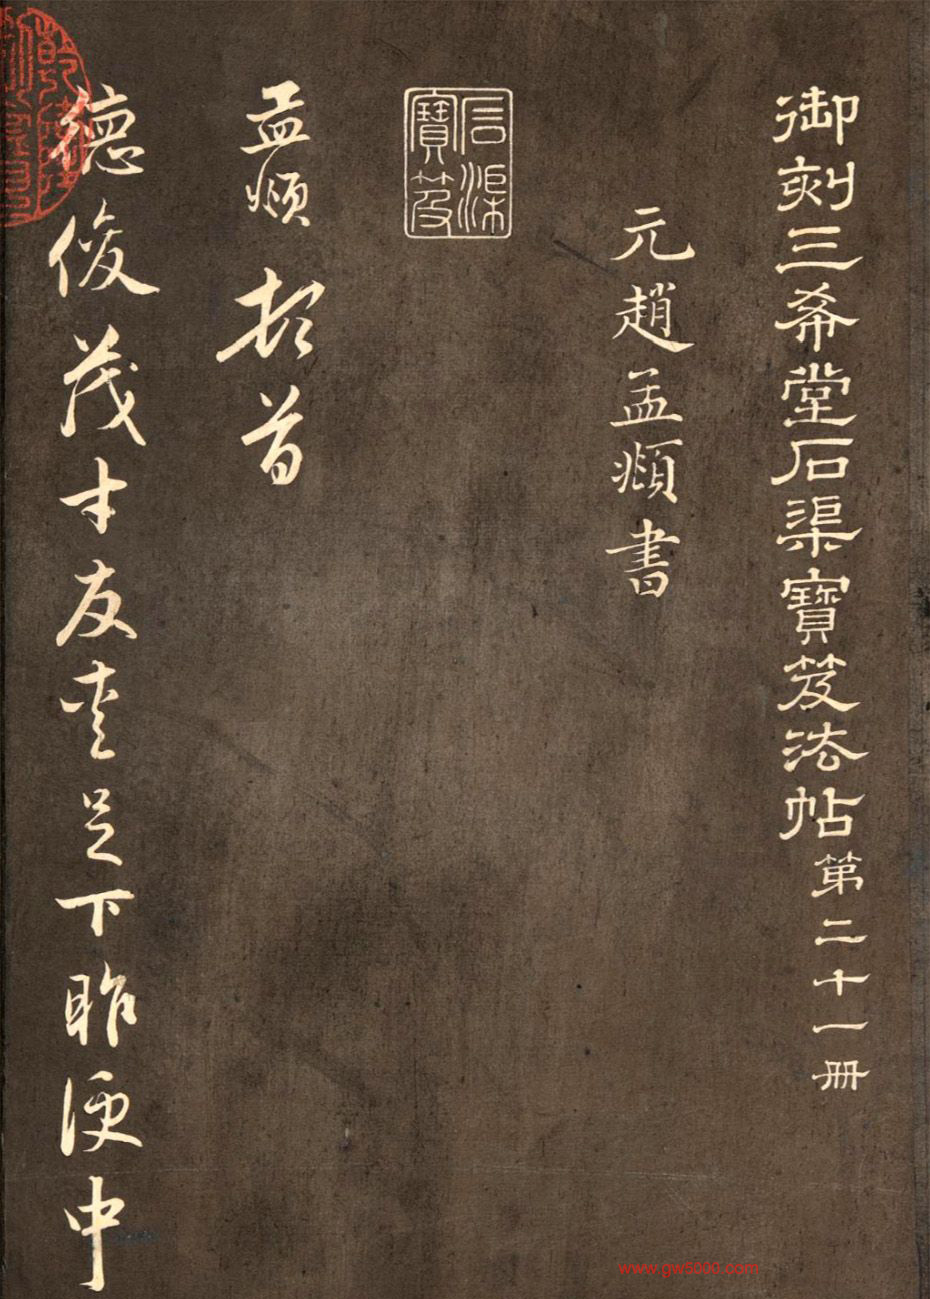 御刻三希堂石渠寶笈法帖第二十一册
元趙孟頫書
石渠寶笈
孟頫頓首
德俊茂才友愛足下昨便中
www.gw5000.com